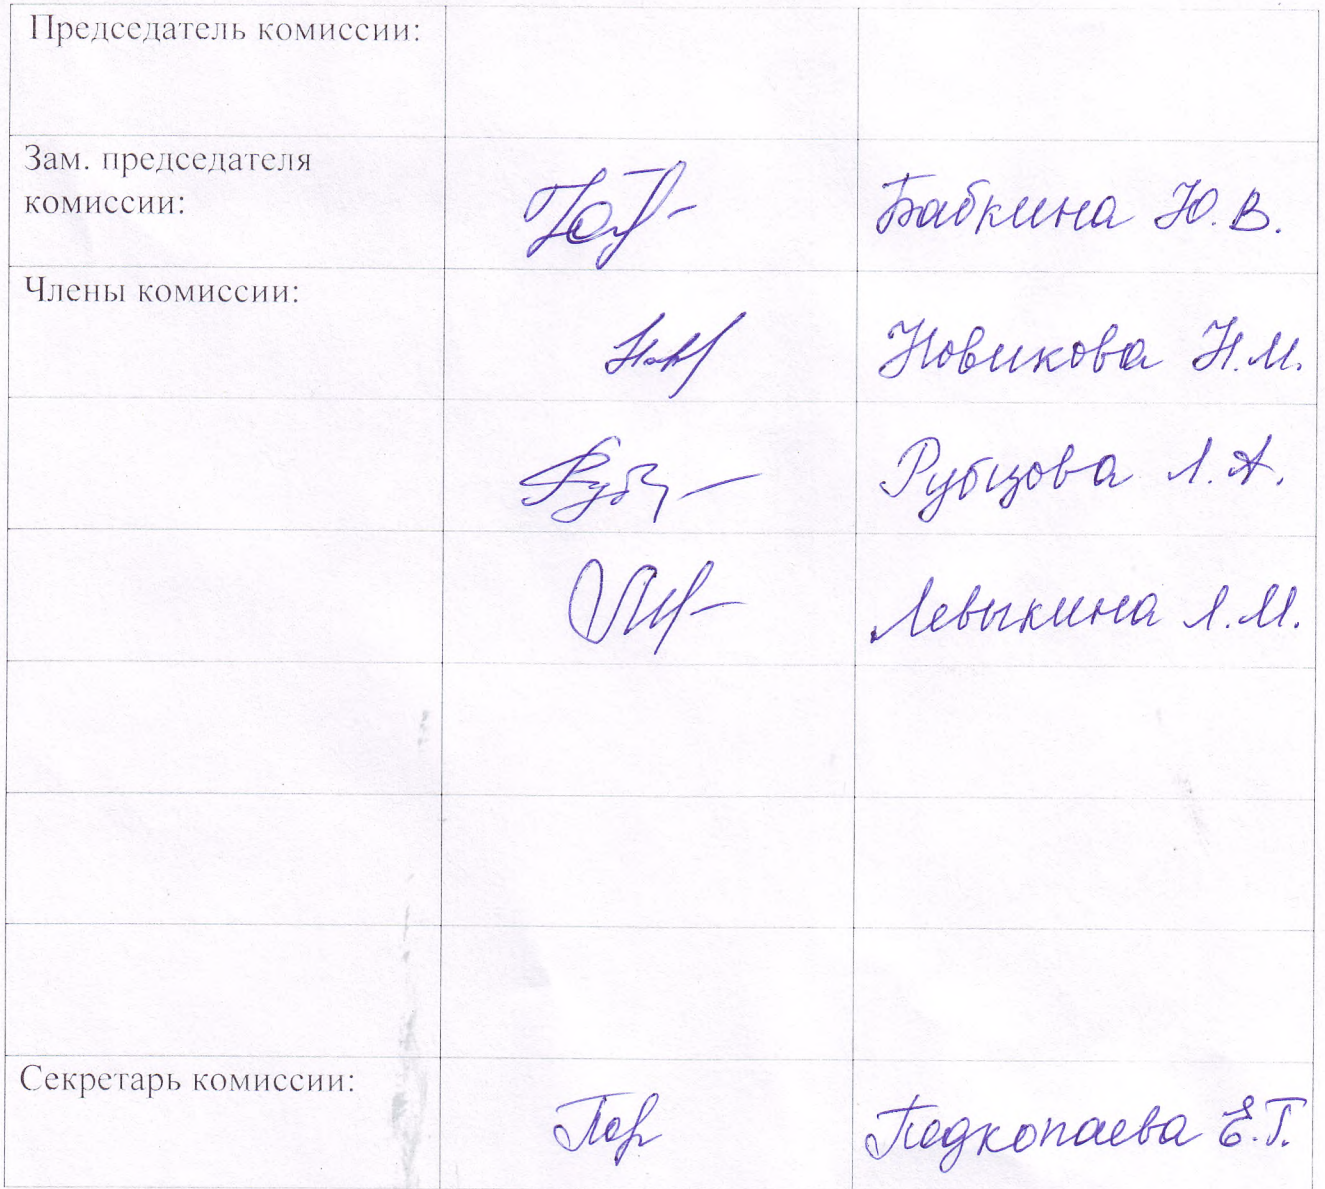 Председатель комиссии:
Зам. председателя
комиссии:
Бабкина Ю.В.
Члены комиссии:
Новикова Н.М.
Рубцова Л.А.
Левыкина Л.М.
Секретарь комиссии:
Подкопаева Е.Г.